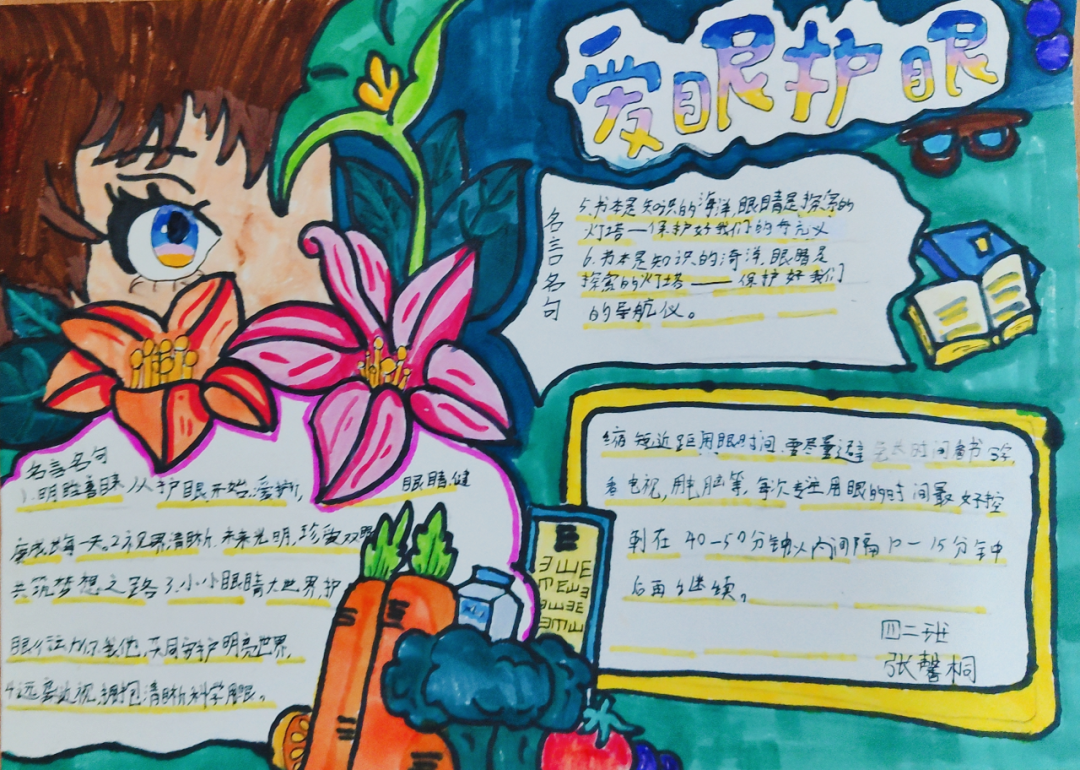 爱眼护眼
名言名句
5.书本是知识的海洋,眼睛是探索的
灯塔——保护好我们的
6.书本是知识的海洋,眼睛是
探索的灯塔——保护好我们
的导航仪。
缩短近距用眼时间,要尽量避免长时间看书写字
看电视,用电脑等,每次专注用眼的时间最好控
制在40—50分钟以内间隔10—15分钟
后再继续。
四二班
张馨桐
名言名句
1.明眸善睐,从护眼开始,爱护,眼睛,健
康成长每一天。2.视界清晰,未来光明,珍爱双眼
共筑梦想之路3.小小眼睛大世界,护
眼行动你我他,共同守护明亮世界,
4.远离近视,拥抱清晰科学用眼。
E